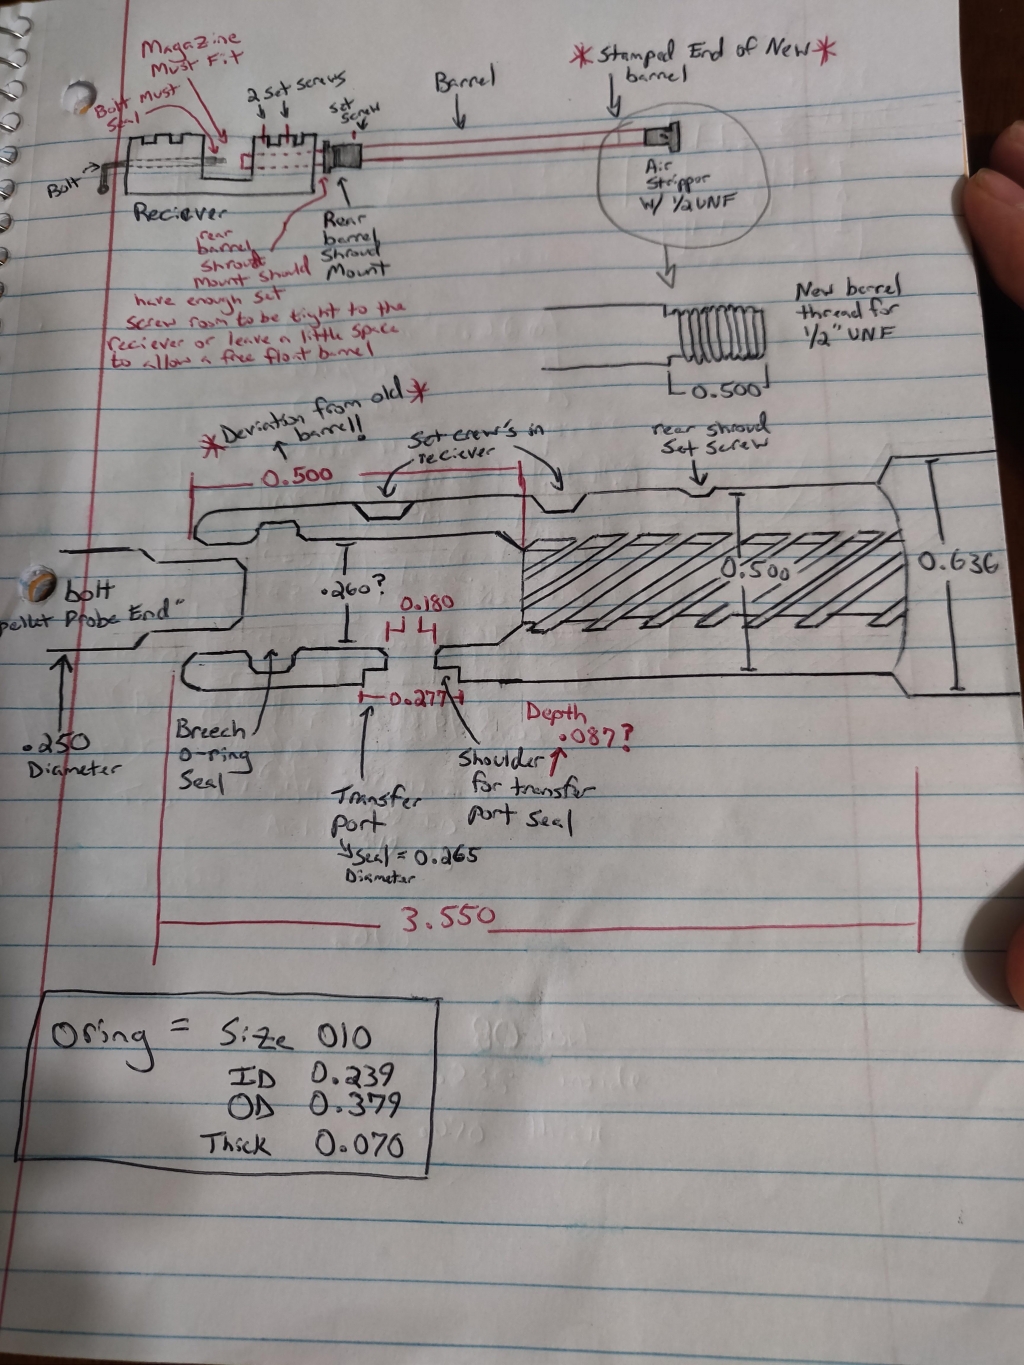 Magazine
Must Fit
Bolt Must
Seal
2 set screws
set
screw
Barrel
* Stamped End of New *
barrel
Bolt
Reciever
Rear
barrel
Shroud
Mount
Air
Stripper
w/ 1/2 UNF
rear
barrel
shroud
mount should
have enough set
screw room to be tight to the
reciever or leave a little space
to allow a free float barrel
New barrel
thread for
1/2" UNF
0.500
* Deviation from old *
barrel!
0.500
Set crew's in
reciever
rear shroud
Set screw
bolt
pellet Probe End"
.260?
0.180
0.500
0.636
0.277
.250
Diameter
Breech
O-ring
Seal
Depth
.087?
Shoulder
for transfer
port seal
Transfer
port
Seal = 0.265
Diameter
3.550
Oring = Size 010
ID 0.239
OD 0.379
Thick 0.070